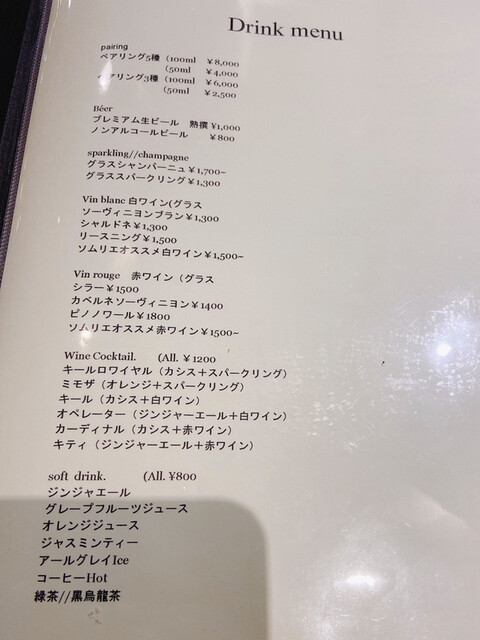 Drink menu
pairing
ペアリング5種（100ml ￥8,000
（50ml ￥4,000
ペアリング3種（100ml ￥6,000
（50ml ￥2,500
Béer
プレミアム生ビール 熟撰 ¥1,000
ノンアルコールビール ￥800
sparkling//champagne
グラスシャンパーニュ￥1,700~
グラススパークリング￥1,300
Vin blanc 白ワイン(グラス
ソーヴィニヨンブラン￥1,300
シャルドネ￥1,300
リースニング￥1,500
ソムリエオススメ白ワイン￥1,500~
Vin rouge 赤ワイン（グラス
シラー￥1500
カベルネソーヴィニヨン￥1400
ピノノワール￥1800
ソムリエオススメ赤ワイン￥1500~
Wine Cocktail. (All. ￥1200
キールロワイヤル（カシス＋スパークリング）
ミモザ（オレンジ＋スパークリング）
キール（カシス＋白ワイン）
オペレーター（ジンジャーエール＋白ワイン）
カーディナル（カシス＋赤ワイン）
キティ（ジンジャーエール＋赤ワイン）
soft drink. (All. ¥800
ジンジャエール
グレープフルーツジュース
オレンジジュース
ジャスミンティー
アールグレイIce
コーヒーHot
緑茶//黒烏龍茶